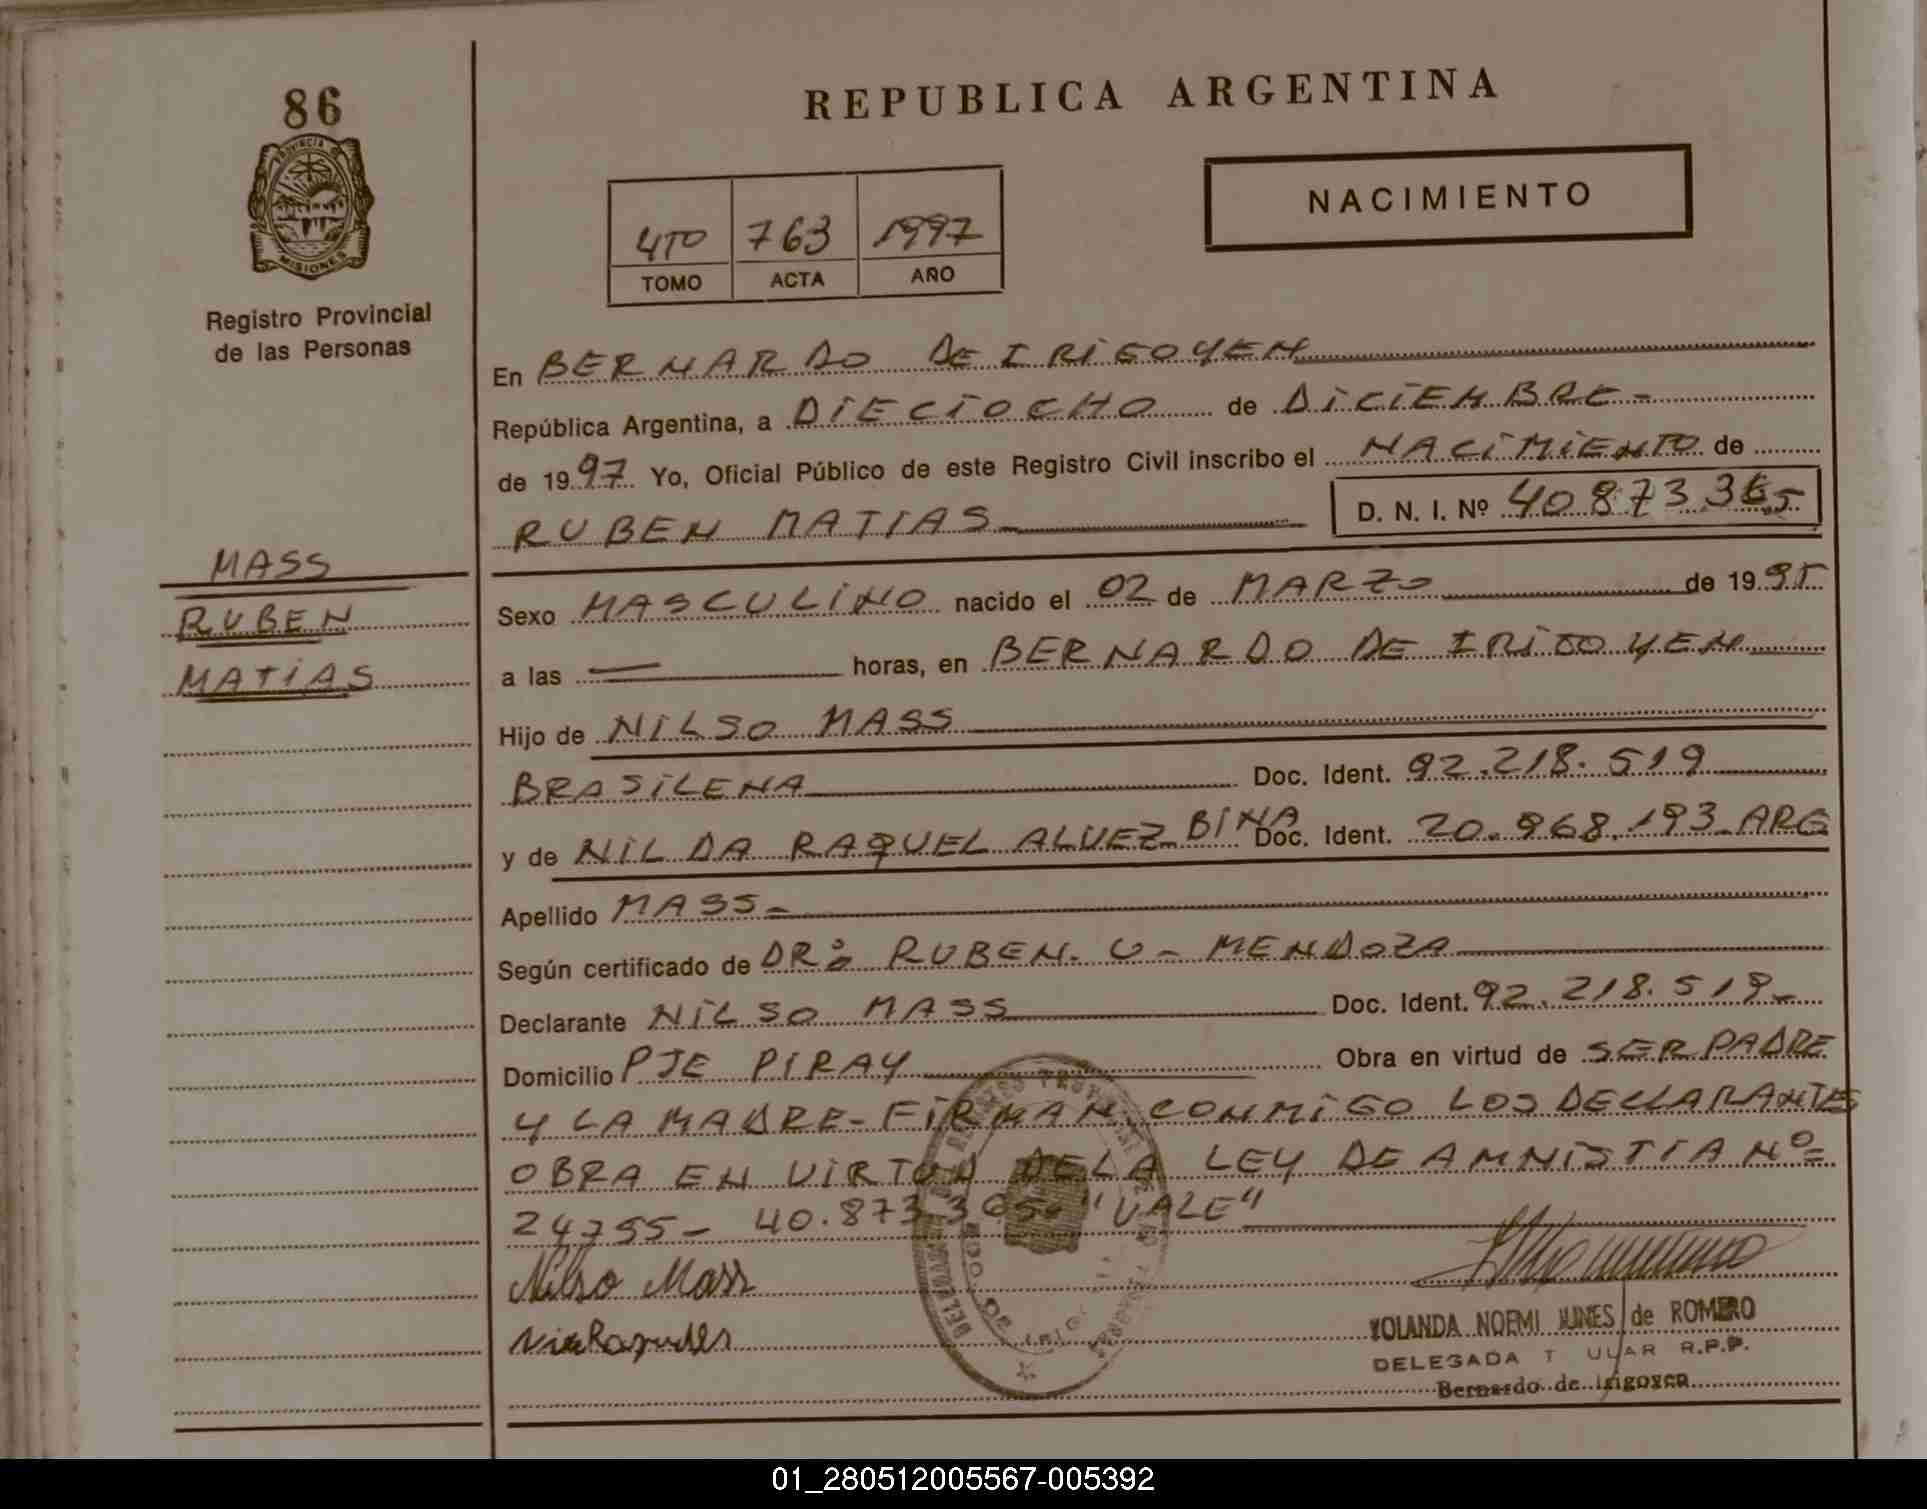 86
PROVINCIA DE
MISIONES
Registro Provincial
de las Personas
MASS
RUBEN
MATIAS
REPUBLICA ARGENTINA
4TO 763 1997
TOMO ACTA AÑO
NACIMIENTO
En BERNARDO DE IRIGOYEN
República Argentina, a DIECIOCHO de DICIEMBRE-
de 1997 Yo, Oficial Público de este Registro Civil inscribo el NACIMIENTO de
RUBEN MATIAS D. N. I. Nº 40873365
Sexo MASCULINO nacido el 02 de MARZO de 1995
a las — horas, en BERNARDO DE IRIGOYEN
Hijo de NILSO MASS
BRASILENA Doc. Ident. 92.218.519
y de NILDA RAQUEL ALVEZ BINA Doc. Ident. 20.968.193 ARG
Apellido MASS-
Según certificado de DR: RUBEN. U- MENDOZA
Declarante NILSO MASS Doc. Ident. 92.218.519-
Domicilio PJE PIRAY Obra en virtud de SER PADRE
Y LA MADRE-FIRMAN CONMIGO LOS DECLARANTES
OBRA EN VIRTUD DE LA LEY DE AMNISTIA Nº=
24755- 40.873.365- "VALE"
Nilso Mass
YOLANDA NOEMI JUNES de ROMERO
DELEGADA T ULAR R.P.P.
Bernardo de Irigoyen
01_280512005567-005392